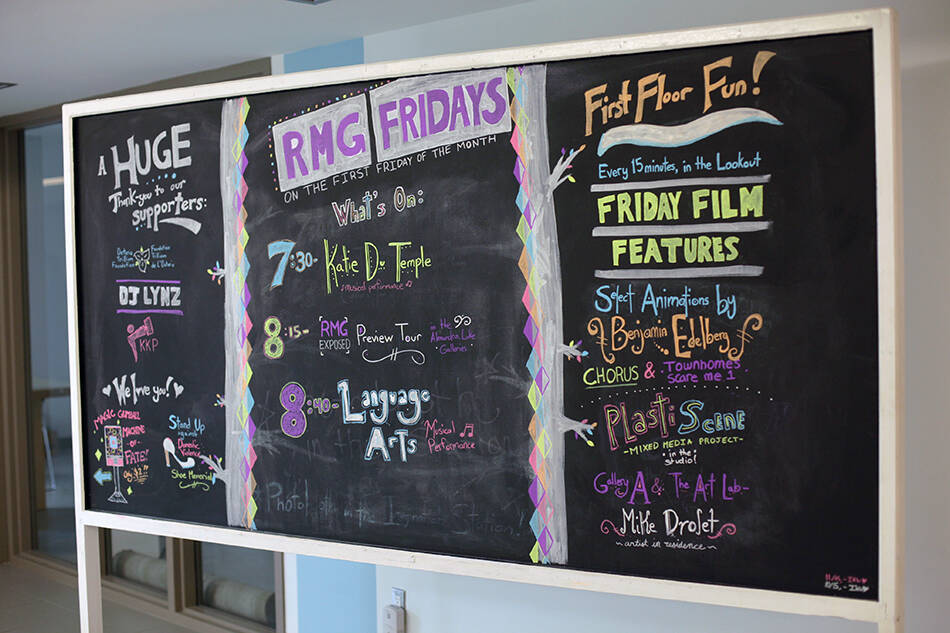 A HUGE
Thank-you to our
supporters:
Ontario Trillium Foundation
Fondation Trillium de L'Ontario
DJ LYNZ
KKP
We love you!
MAGIC GUMBALL
MACHINE
OF
FATE!!
Stand Up
Domestic
Violence
Shoe Memorial
RMG FRIDAYS
ON THE FIRST FRIDAY OF THE MONTH
What's On:
7:30- Katie Du Temple
musical performance
8:15- RMG EXPOSED Preview Tour in the Alexandra Luke Galleries
8:40- Language Arts
Musical Performance
Photo
in the
First Floor Fun!
Every 15 minutes, in the Lookout
FRIDAY FILM
FEATURES
Select Animations by
Benjamin Edelberg
CHORUS & Townhomes
Scare me 1
Plasti Scene
-MIXED MEDIA PROJECT-
in the
studio!
Gallery A & The Art Lab-
Mike Drolet
~ artist in residence ~